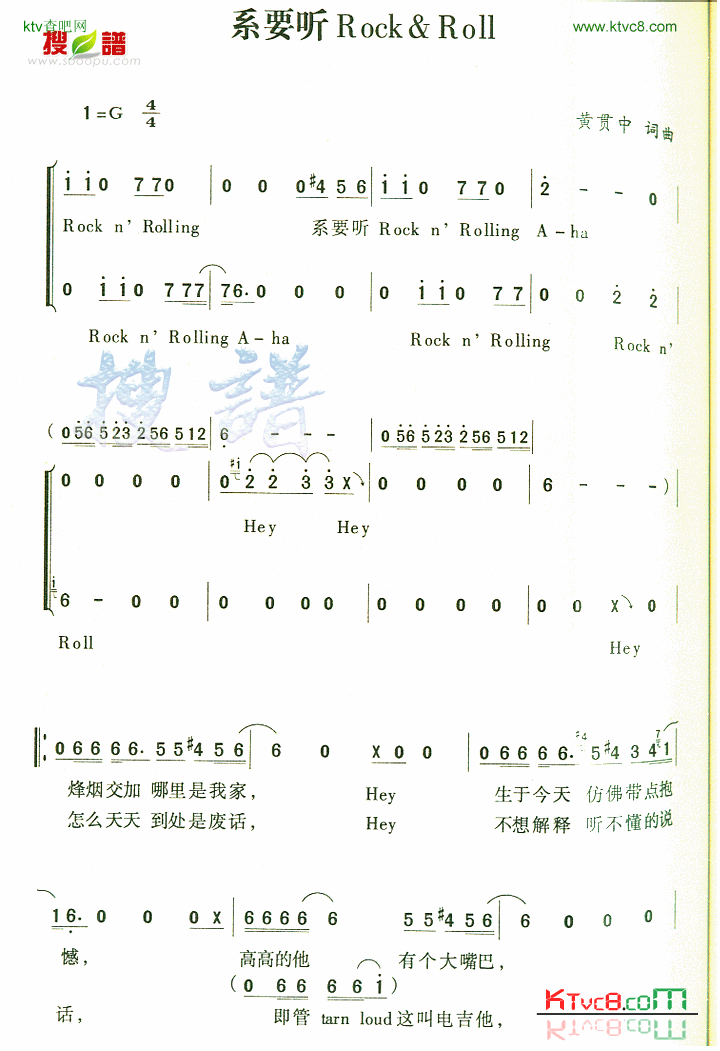 ktv查吧网
搜谱
www.sooopu.com
系要听Rock & Roll
www.ktvc8.com
1=G 4/4
黄贯中 词曲
i i 0 7 7 0 | 0 0 0 #4 5 6 | i i 0 7 7 0 | 2 - - 0
Rock n' Rolling 系要听 Rock n' Rolling A-ha
0 i i 0 7 7 7 | 7 6. 0 0 0 | 0 i i 0 7 7 | 0 0 2 2
Rock n' Rolling A-ha Rock n' Rolling Rock n'
搜譜
( 0 56 5 23 2 56 5 12 | 6 - - - | 0 56 5 23 2 56 5 12 |
0 0 0 0 | 0 2 2 3 3 X | 0 0 0 0 | 6 - - - )
Hey Hey
6 - 0 0 | 0 0 0 0 | 0 0 0 0 | 0 0 X 0
Roll Hey
0 6 6 6 6 6. 5 5 #4 5 6 | 6 0 X 0 0 | 0 6 6 6 6 6. 5 #4 3 4 1
烽烟交加 哪里是我家， Hey 生于今天 仿佛带点抱
怎么天天 到处是废话， Hey 不想解释 听不懂的说
1 6. 0 0 0 X | 6 6 6 6 6 6 5 5 #4 5 6 | 6 0 0 0
憾， 高高的他 有个大嘴巴，
( 0 6 6 6 6 i )
话， 即管 tarn loud这叫电吉他，
KTvc8.com